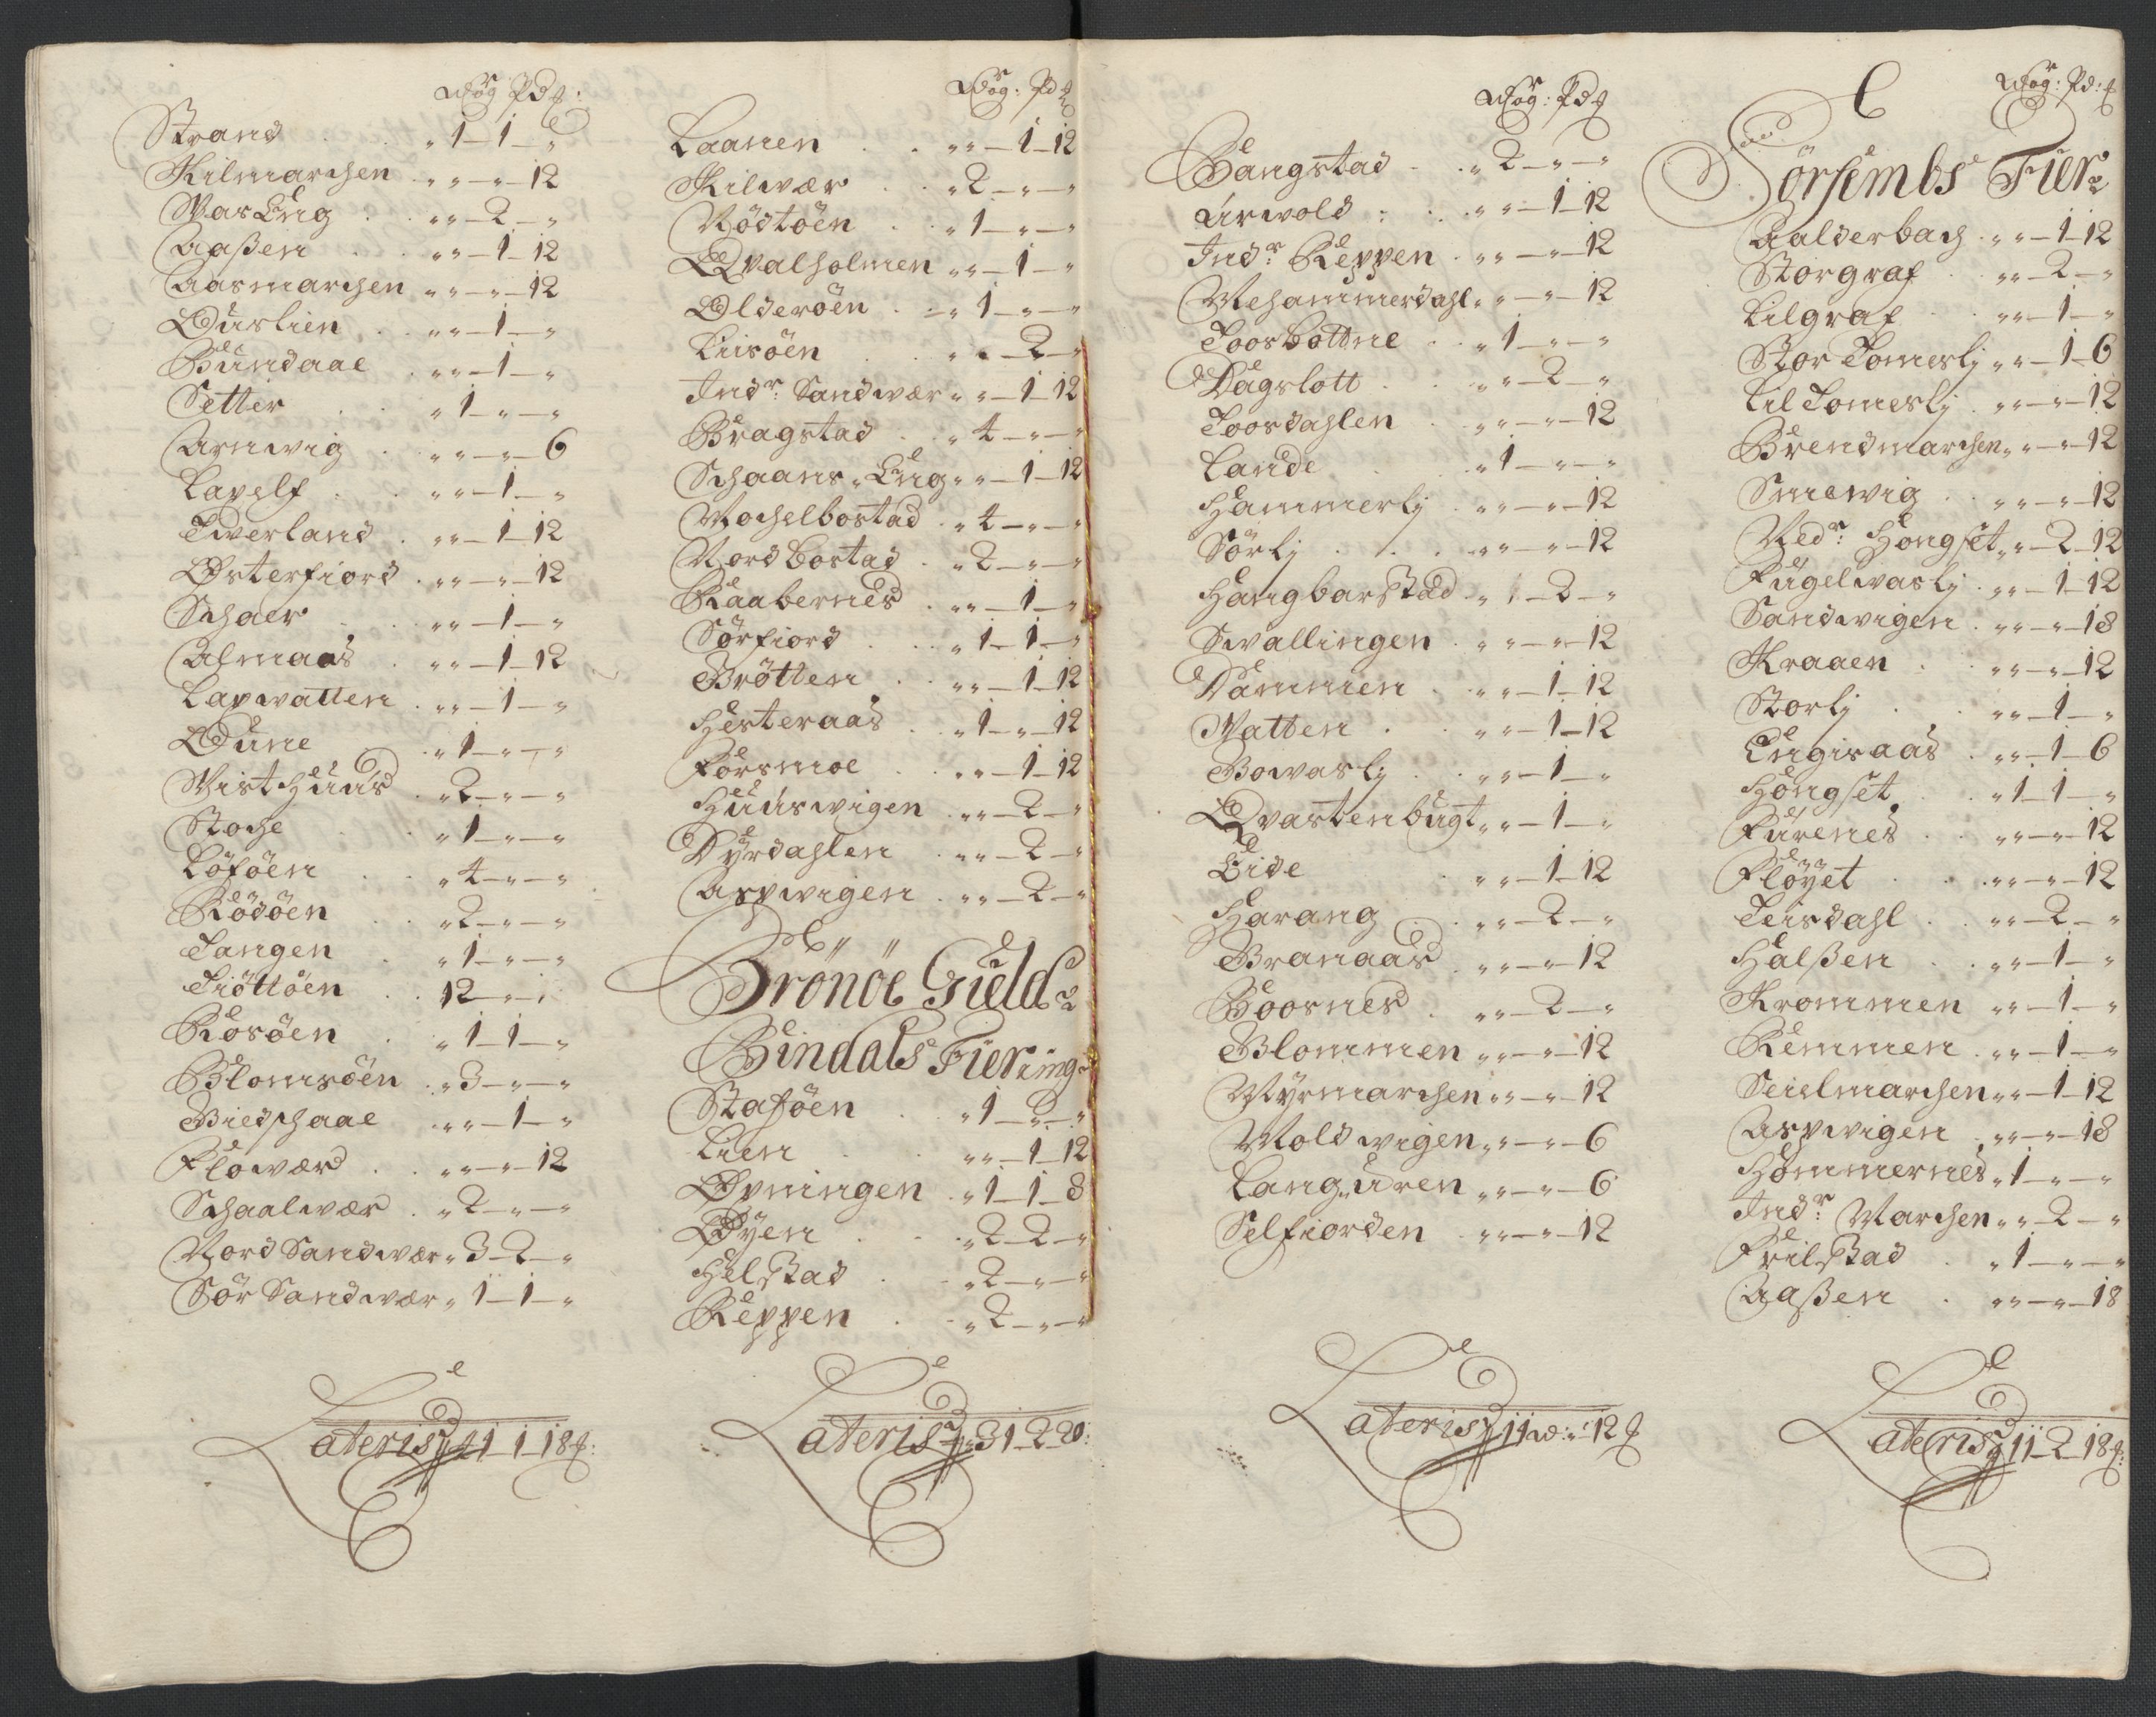 Wog Pd ℔:
Strand . „ 1 – 1 – „
Kilmarchen „ „ – „ – 12
Mas Eng . „ „ – 2 – „
Aaßen „ „ – 1 – 12
Aasmarchen „ „ – „ – 12
Øuslien . „ „ – 1 – „
Bundaae . „ „ – 1 – „
Setter . „ 1 – „ – „
Arnwig . „ „ – „ – 6
Lapelf . „ „ – 1 – „
Twerland . „ „ – 1 – 12
Østerfiord . „ „ – „ – 12
Schaer . „ „ – 1 – „
Almaas . „ „ – 1 – 12
Lapwatten . „ „ – 1 – „
Øune „ 1 – „ – „
Mist Huus . „ 2 – „ – „
Stoche „ 1 – „ – „
Löföen . „ 4 – „ – „
Rödöen . „ 2 – „ – „
Tangen . „ 1 – „ – „
Tiöttöen . 12 – „ – „
Rosöen . „ 1 – 1 – „
Blomsöen . „ 3 – „ – „
Biedschaae „ „ – 1 – „
Flowær . „ „ – „ – 12
Schaalwær . „ 2 – „ – „
Nord Sandwær „ 3 – 2 – „
Sör Sandwær „ 1 – 1 – „
Lateris 41 – 1 – 18 ℔:

Wog: Pd ℔
Laanen . „ „ – 1 – 12
Kilwær . „ 2 – „ – „
Rödtöen . „ 1 – „ – „
Qvalholmen „ „ – 1 – „
Olderöen . „ 1 – „ – „
Liisöen „ „ – 2 – „
Indr: Sandwær „ „ – 1 – 12
Bragstad . „ 4 – „ – „
Schaans Eng „ „ – 1 – 12
Mochelbostad . „ 4 – „ – „
Nord bostad . „ 2 – „ – „
Raabernes . „ „ – 1 – „
Sörfiord . „ 1 – 1 – „
Brötten . „ „ – 1 – 12
Hesteraas . „ 1 – „ – 12
Forsmoe . „ „ – 1 – 12
Huuswigen . „ „ – 2 – „
Dyrdahlen . „ „ – 2 – „
Aspwigen . „ „ – 2 – „
Brönöe Gield
Bindals Fiering
Staföen . „ 1 – 2 – „
Lien . „ „ – 1 – 12
Øpningen . „ 1 – 1 – 8
Øyen . „ 2 – 2 – „
Helstad . „ 2 – „ – „
Reppen . „ 2 – „ – „
Lateris 31 – 2 – 20:

Wog: Pd ℔
Bangstad . „ 2 – „ – „
Urwold : . „ „ – 1 – 12
Indr: Reppen . „ „ – „ – 12
Mehammerdahl „ „ – „ – 12
Toosbottne . „ 1 – „ – „
Dagslott . „ „ – 2 – „
Toosdahlen . „ „ – „ – 12
Lande . „ 1 – „ – „
Hammerlj . „ „ – „ – 12
Sörlj . . . „ „ – „ – 12
Hangbarstad . „ 1 – 2 – „
Swallingen . „ „ – „ – 12
Dammen . „ „ – 1 – 12
Vatten . „ „ – 1 – 12
Bowaslj . „ „ – 1 – „
Qvastenbugt „ „ – 1 – „
Eide . „ „ – 1 – 12
Harang . „ „ – 2 – „
Branaas „ „ – „ – 12
Boosnes . „ „ – 2 – „
Blommen „ „ – „ – 12
Myrmarchen „ „ – „ – 12
Moldwigen „ „ – „ – 6
Lang„uren „ „ – „ – 6
Selfiorden . „ „ – „ – 12
Lateris 11 w: „ 12 ℔

Wog: Pd: ℔
Sörsembs Fier:
Aalderbach . „ „ – 1 – 12
Storgraf . „ „ – 2 – „
Lilgraf . „ „ – 1 – „
Stor Tomeslj „ „ – 1 – 6
Lil Tomeslj . „ „ – „ – 12
Brendmarchen „ „ – „ – 12
Smewig . „ „ – „ – 12
Nedr: Hongset „ „ – 2 – 12
Fugelwaslj . „ „ – 1 – 12
Sandwigen . „ „ – „ – 18
Kraaen . „ „ – „ – 12
Storlj . „ „ – 1 – „
Engisaas . „ „ – 1 – 6
Hongset . „ 1 – 1 – „
Furenes . „ „ – „ – 12
Flöyet . „ „ – „ – 12
Teisdahl . „ „ – 2 – „
Halßen . „ „ – 1 – „
Krommen „ „ – 1 – „
Remmen . „ „ – 1 – „
Seielmarchen „ „ – 1 – 12
Aspwigen . „ „ – „ – 18
Hommernes „ 1 – „ – „
Indr: Marchen „ „ – 2 – „
Frilstad . „ 1 – „ – „
Aaßen . „ „ – „ – 18
Lateris 11 – 2 – 18 ℔: